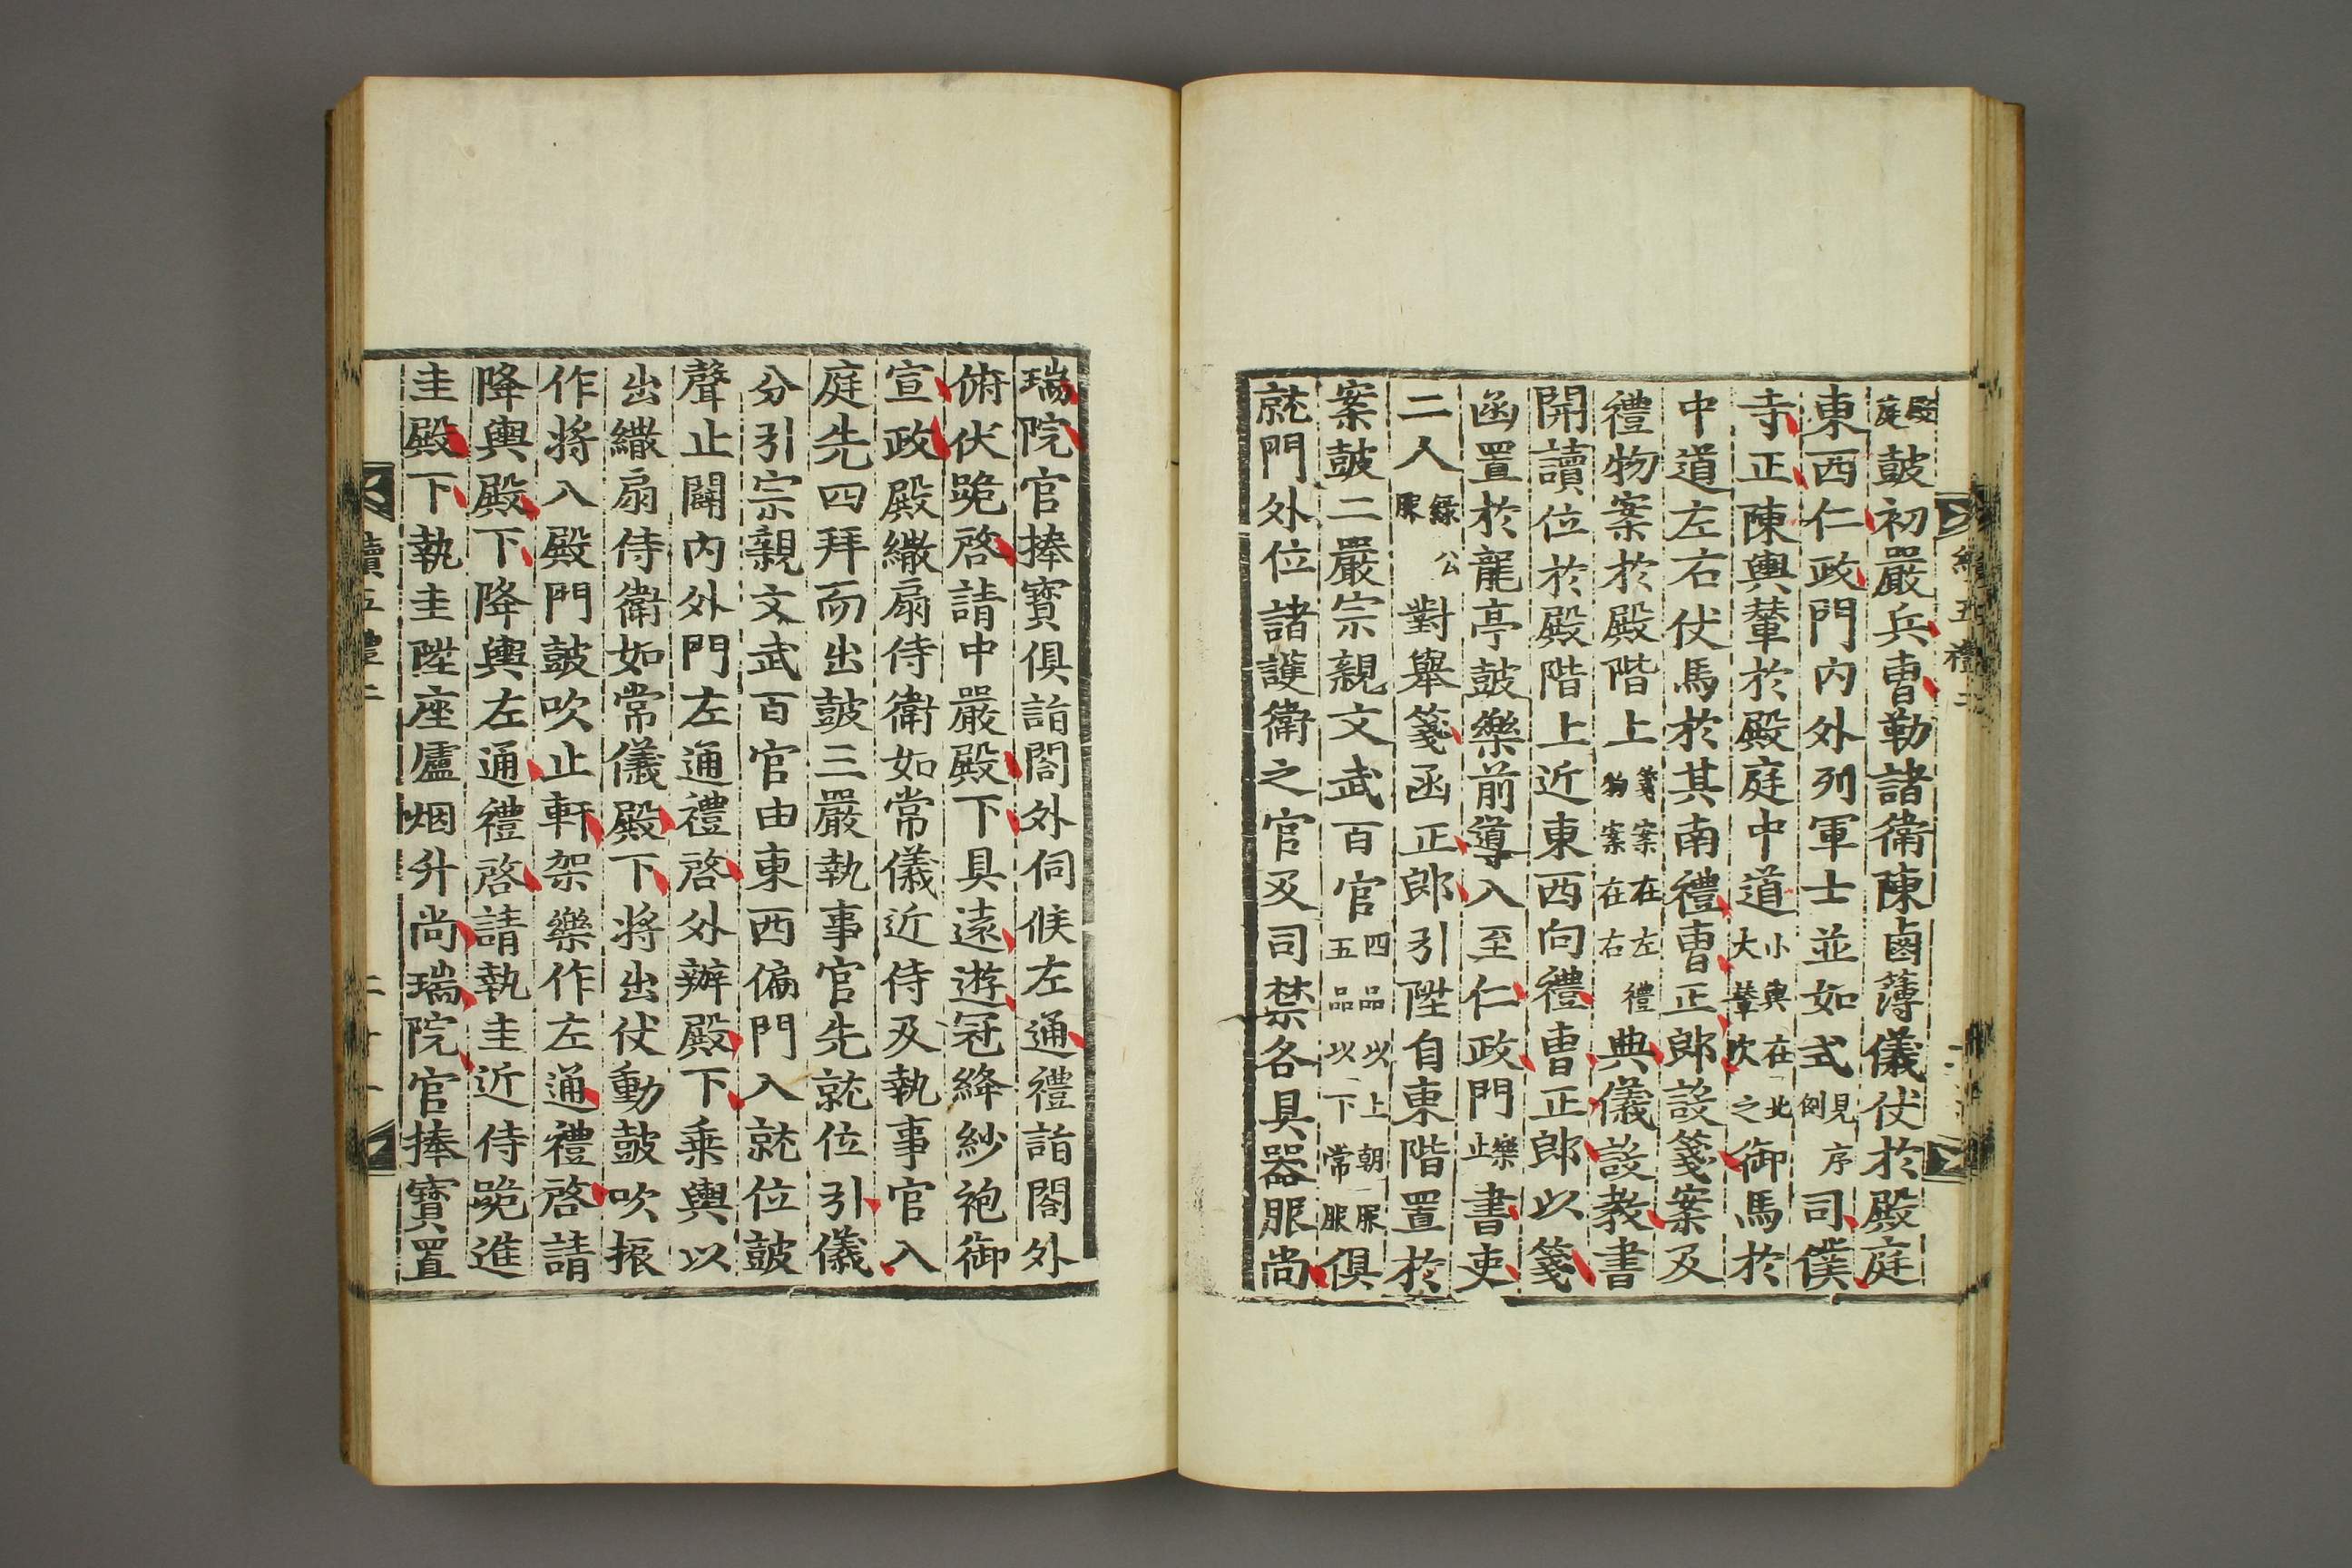 殿庭鼓初嚴兵曹勒諸衛陳鹵簿儀仗於殿庭
東西仁政門內外列軍士並如式見序例司僕
寺正陳輿輦於殿庭中道小輿在北大輦次之御馬於
中道左右仗馬於其南禮曹正郎設箋案及
禮物案於殿階上箋案在左禮物案在右典儀設教書
開讀位於殿階上近東西向禮曹正郎以箋
函置於龍亭鼓樂前導入至仁政門樂止書吏
二人綠公服對舉箋函正郎引陞自東階置於
案鼓二嚴宗親文武百官四品以上朝服五品以下常服俱
就門外位諸護衛之官及司禁各具器服尚
瑞院官捧寶俱詣閤外伺候左通禮詣閤外
俯伏跪啓請中嚴殿下具遠遊冠絳紗袍御
宣政殿繖扇侍衛如常儀近侍及執事官入
庭先四拜而出鼓三嚴執事官先就位引儀
分引宗親文武百官由東西偏門入就位鼓
聲止闢內外門左通禮啓外辦殿下乘輿以
出繖扇侍衛如常儀殿下將出仗動鼓吹振
作將入殿門鼓吹止軒架樂作左通禮啓請
降輿殿下降輿左通禮啓請執圭近侍跪進
圭殿下執圭陞座爐烟升尚瑞院官捧寶置
續五禮二